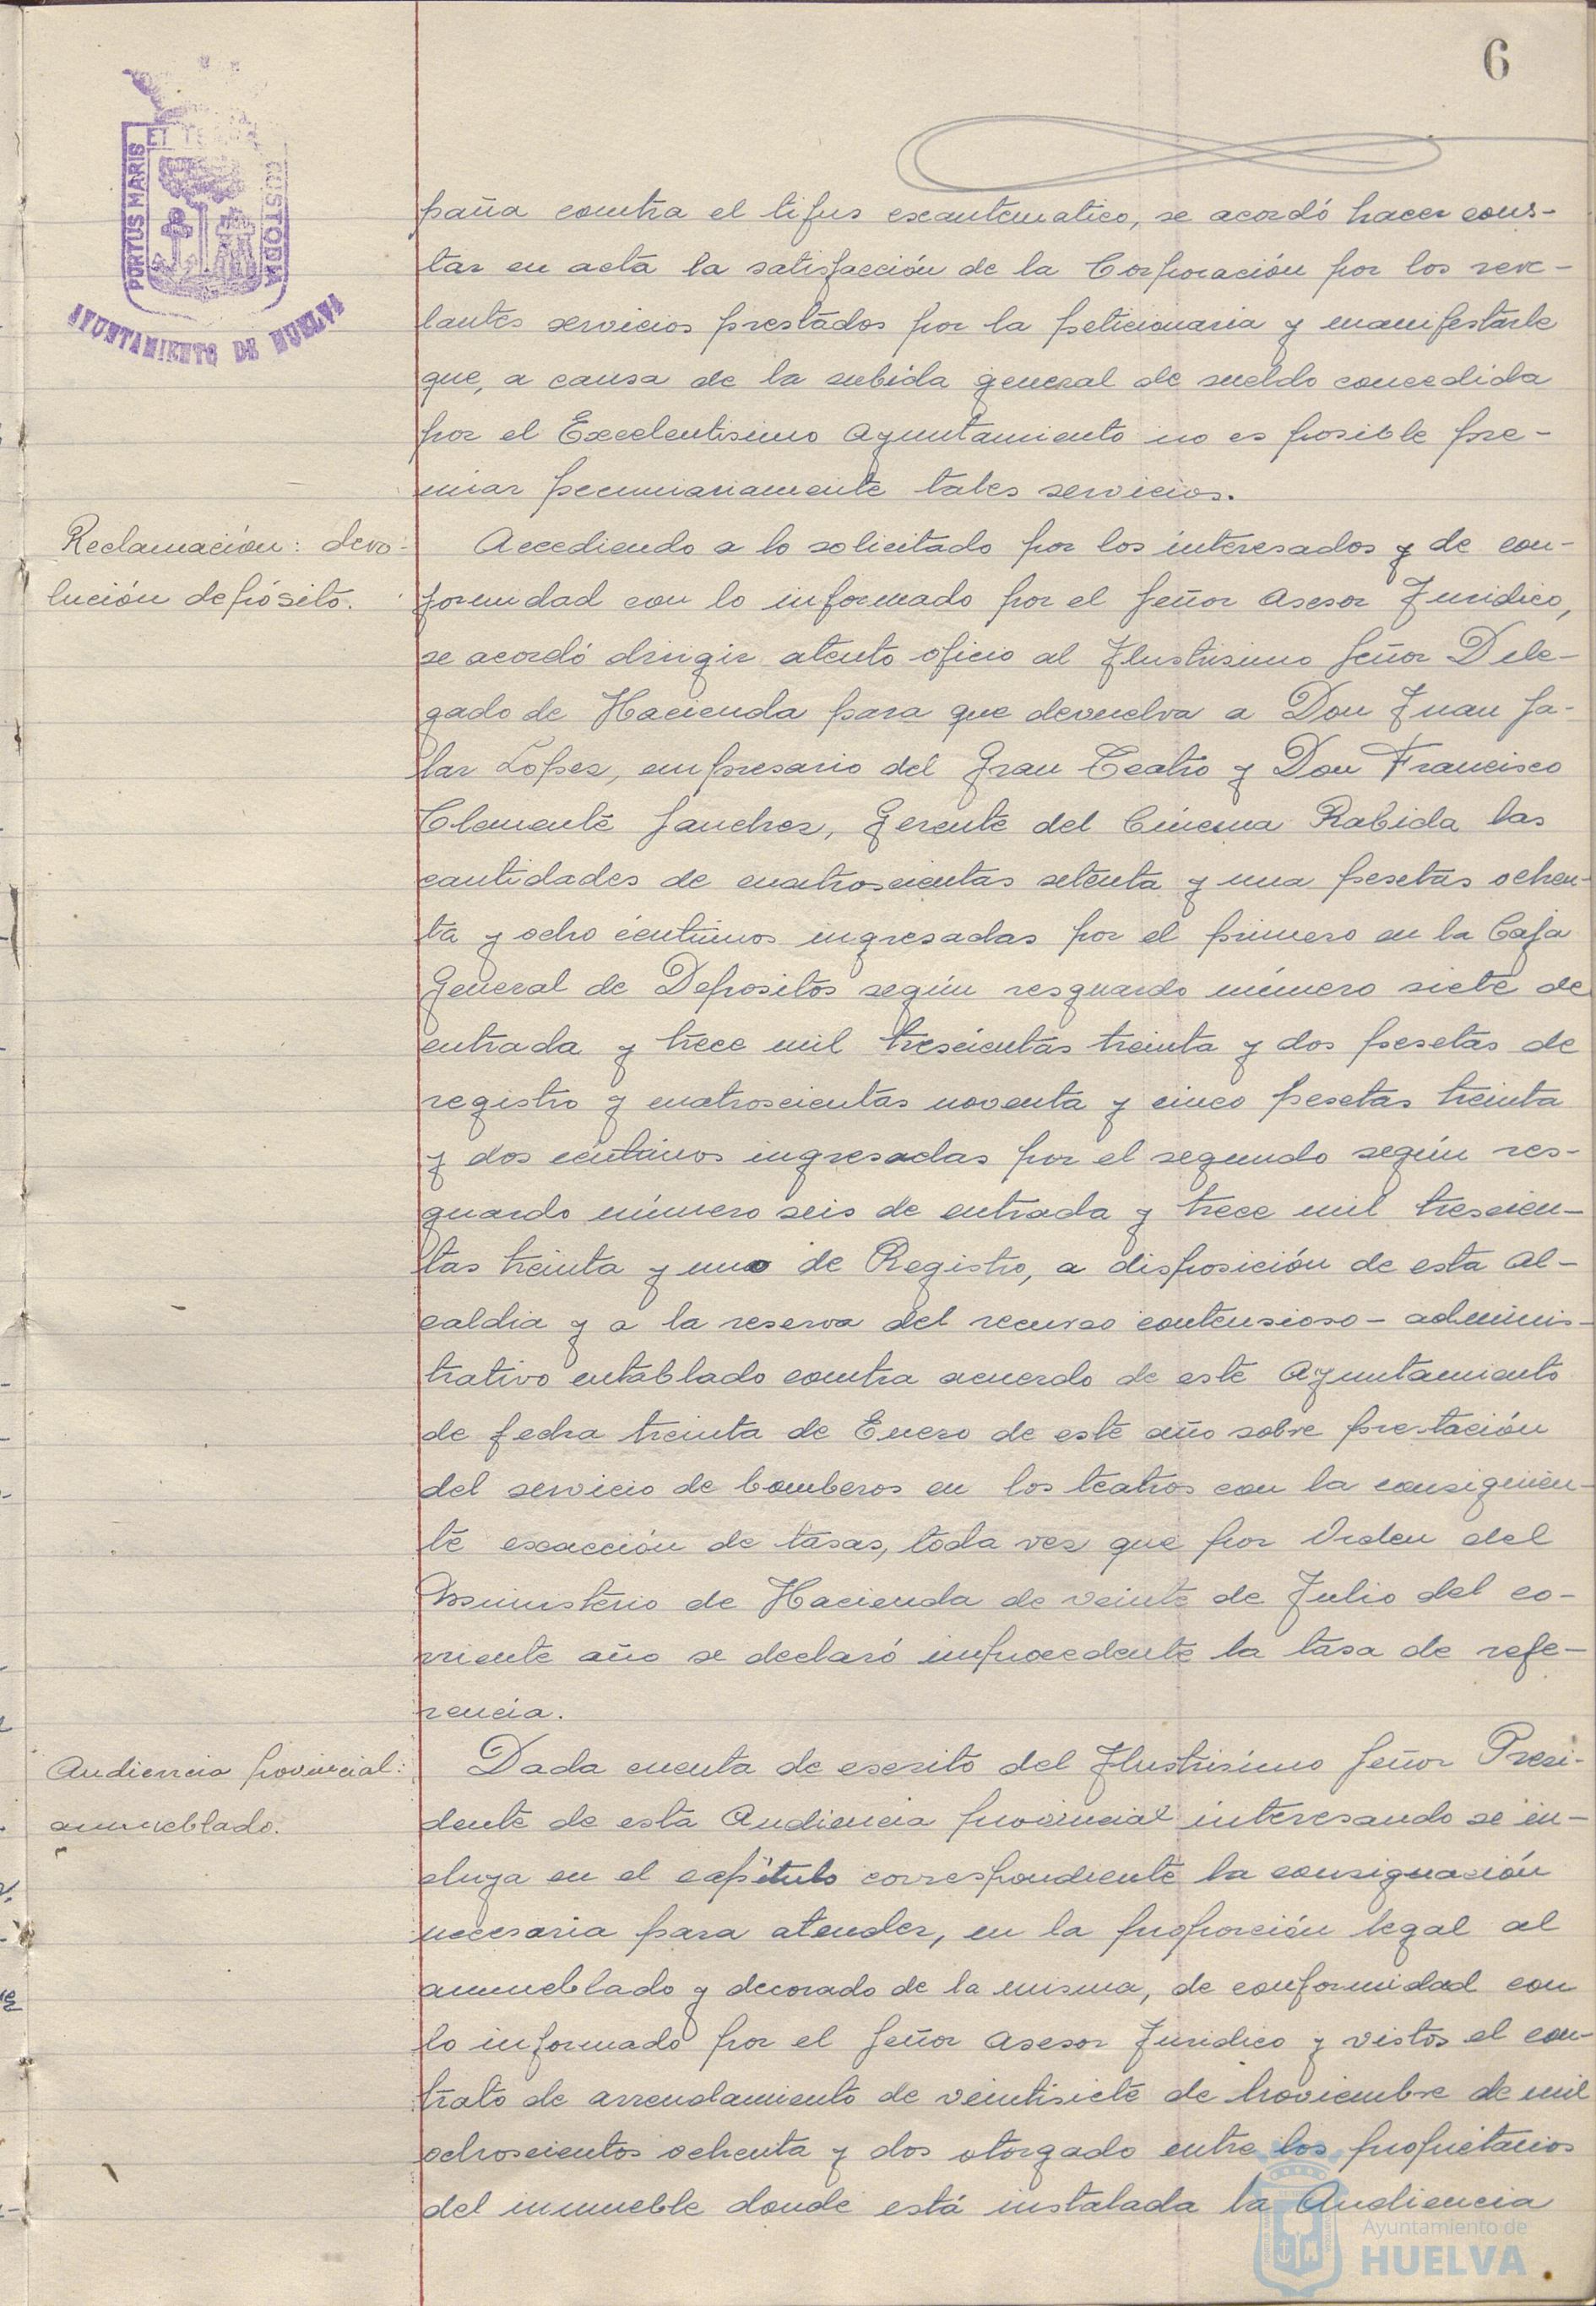 6
PORTUS MARIS
ET TE
CUSTODIA
AYUNTAMIENTO DE HUELVA
paña contra el tifus exantematico, se acordó hacer cons-
tar en acta la satisfacción de la Corporación por los reve-
lantes servicios prestados por la peticionaria y manifestarle
que, a causa de la subida general de sueldo concedida
por el Excelentisimo Ayuntamiento no es posible pre-
miar pecuniariamente tales servicios.
Reclamación: devo-
lución depósito.
Accediendo a lo solicitado por los interesados y de con-
formidad con lo informado por el Señor Asesor Juridico,
se acordó dirigir atento oficio al Ilustrisimo Señor Dele-
gado de Hacienda para que devuelva a Don Juan Sa-
lar Lopez, empresario del Gran Teatro y Don Francisco
Clemente Sanchez, Gerente del Cinema Rabida las
cantidades de cuatroscientas setenta y una pesetas ochen-
ta y ocho céntimos ingresadas por el primero en la Caja
General de Depositos según resguardo número siete de
entrada y trece mil trescientas treinta y dos pesetas de
registro y cuatroscientas noventa y cinco pesetas treinta
y dos céntimos ingresadas por el segundo según res-
guardo número seis de entrada y trece mil trescien-
tas treinta y uno de Registro, a disposición de esta Al-
caldia y a la reserva del recurso contensioso-adminis-
trativo entablado contra acuerdo de este Ayuntamiento
de fecha treinta de Enero de este año sobre prestación
del servicio de bomberos en los teatros con la consiguien-
te exacción de tasas, toda vez que por Orden del
Ministerio de Hacienda de veinte de Julio del co-
rriente año se declaró improcedente la tasa de refe-
rencia.
Audiencia provincial:
amueblado.
Dada cuenta de escrito del Ilustrisimo Señor Presi-
dente de esta Audiencia provincial interesando se in-
cluya en el capitulo correspondiente la consignación
necesaria para atender, en la proporción legal al
amueblado y decorado de la misma, de conformidad con
lo informado por el Señor Asesor Juridico y vistos el con-
trato de arrendamiento de veintisiete de Noviembre de mil
ochoscientos ochenta y dos otorgado entre los propietarios
del inmueble donde está instalada la Audiencia
Ayuntamiento de
HUELVA